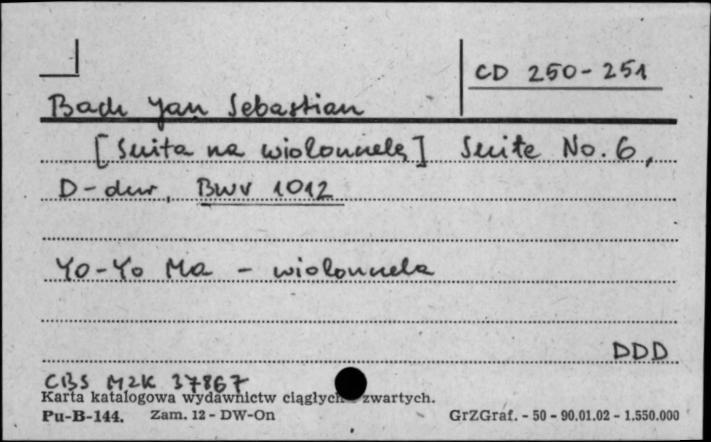 CD 250-251
Bach Jan Sebastian
[Suita na wiolonczelę] Suite No. 6,
D-dur, BWV 1012
Yo-Yo Ma - wiolonczela
DDD
CBS M2K 37867
Karta katalogowa wydawnictw ciągłych zwartych.
Pu-B-144. Zam. 12 - DW-On GrZGraf. - 50 - 90.01.02 - 1.550.000